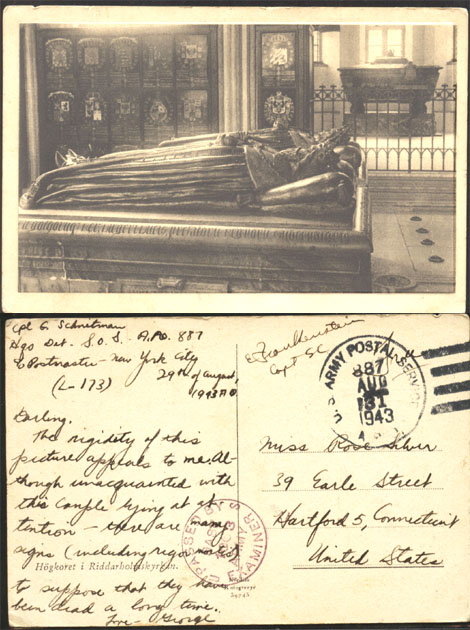 Cpl G. Schnetman
Hqo Det. S.O.S. A.P.O. 887
c/o Postmaster - New York City
(L-173) 29th of August,
1943 A.D.
Darling,
The rigidity of this
picture appeals to me. Al-
though unacquainted with
this couple lying at at-
tention - there are many
signs (including rigor mortis)
Högkoret i Riddarholmskyrkan.
to suppose that they have
been dead a long time.
Love - George
PASSED BY
U.S.
ARMY
EXAMINER
54745
Frankenstein
Capt SC
U.S. ARMY POSTAL SERVICE
887
AUG
31
1943
Miss Rose Silver
39 Earle Street
Hartford 5, Connecticut
United States